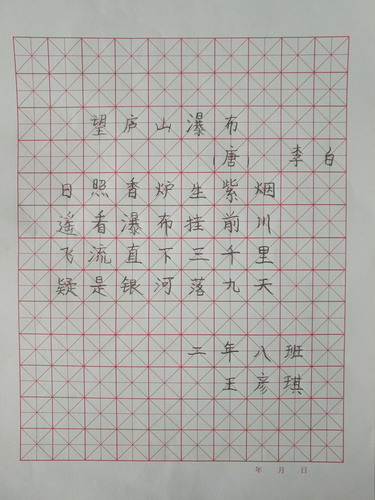 望庐山瀑布
（唐） 李白
日照香炉生紫烟
遥看瀑布挂前川
飞流直下三千里
疑是银河落九天
二年八班
王彦琪
年 月 日